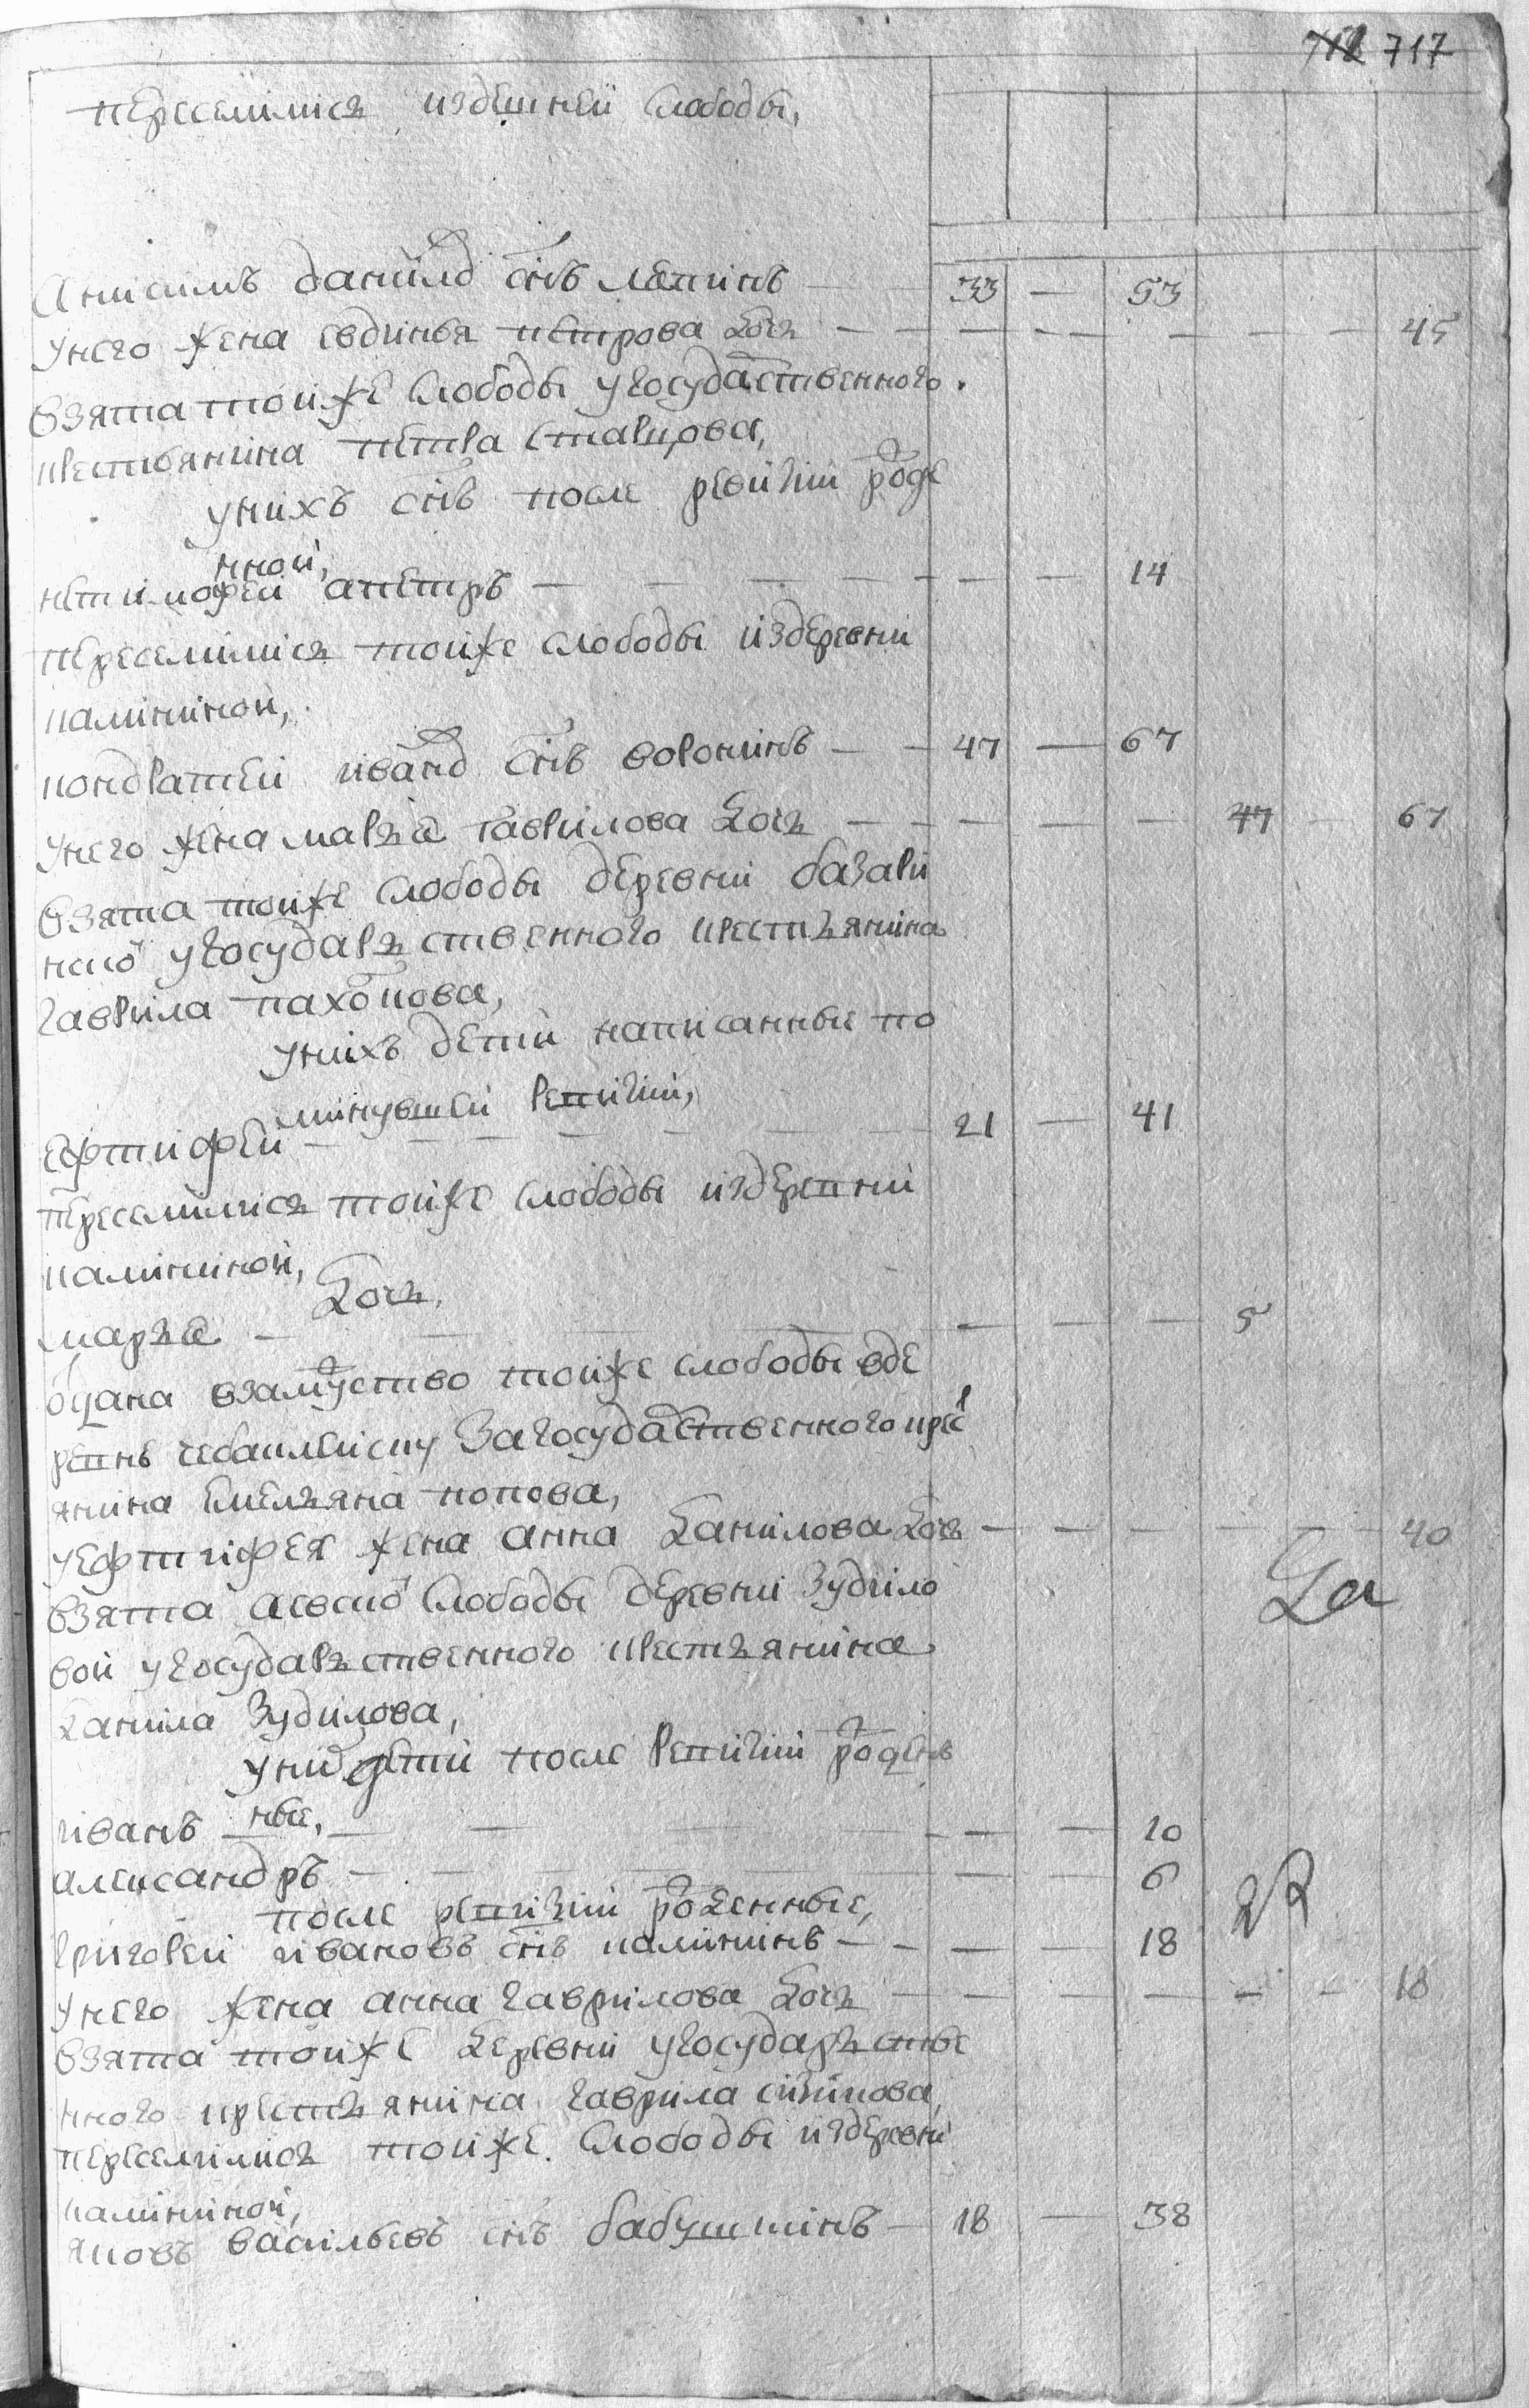 717
переселился издешней слободы,
Анисимъ данилд снъ лапинъ — 33 — 53
унего жена евдикея петрова дочь — 45
взята тойже слободы угосударственного
крестьянина петра
унихъ снъ после ревизии роже
нной,
петръ — 14
переселился тойже слободы издеревни
калининой,
кондратей иванд снъ воронинъ — 47 — 67
унего жена марья гаврилова дочь — 47 — 67
взята тойже слободы деревни
угосударьственного крестьянина
гаврила пахомова,
унихъ дети написанные по
минувшей ревизии,
ефтифей — 21 — 41
переселился тойже слободы издеревни
калининой,
дочь,
марья — 5
взамужство тойже слободы вде
ревнь загосударственного крес
янина емельяна попова,
уефтифея жена анна данилова дочь — 40
взята слободы деревни зудило
вой угосударьственного крестьянина
данила зудилова,
уних дети после ревизии рожден
ные,
иванъ — 10
александръ — 6
после ревизии роженные,
григорей ивановъ снъ калининъ — 18
унего жена анна гаврилова дочь — 18
взята тойже деревни угосударьстве
нного крестьянина гаврила
переселился тойже слободы издеревни
калининой,
яковъ васильевъ снъ бабушкинъ — 18 — 38